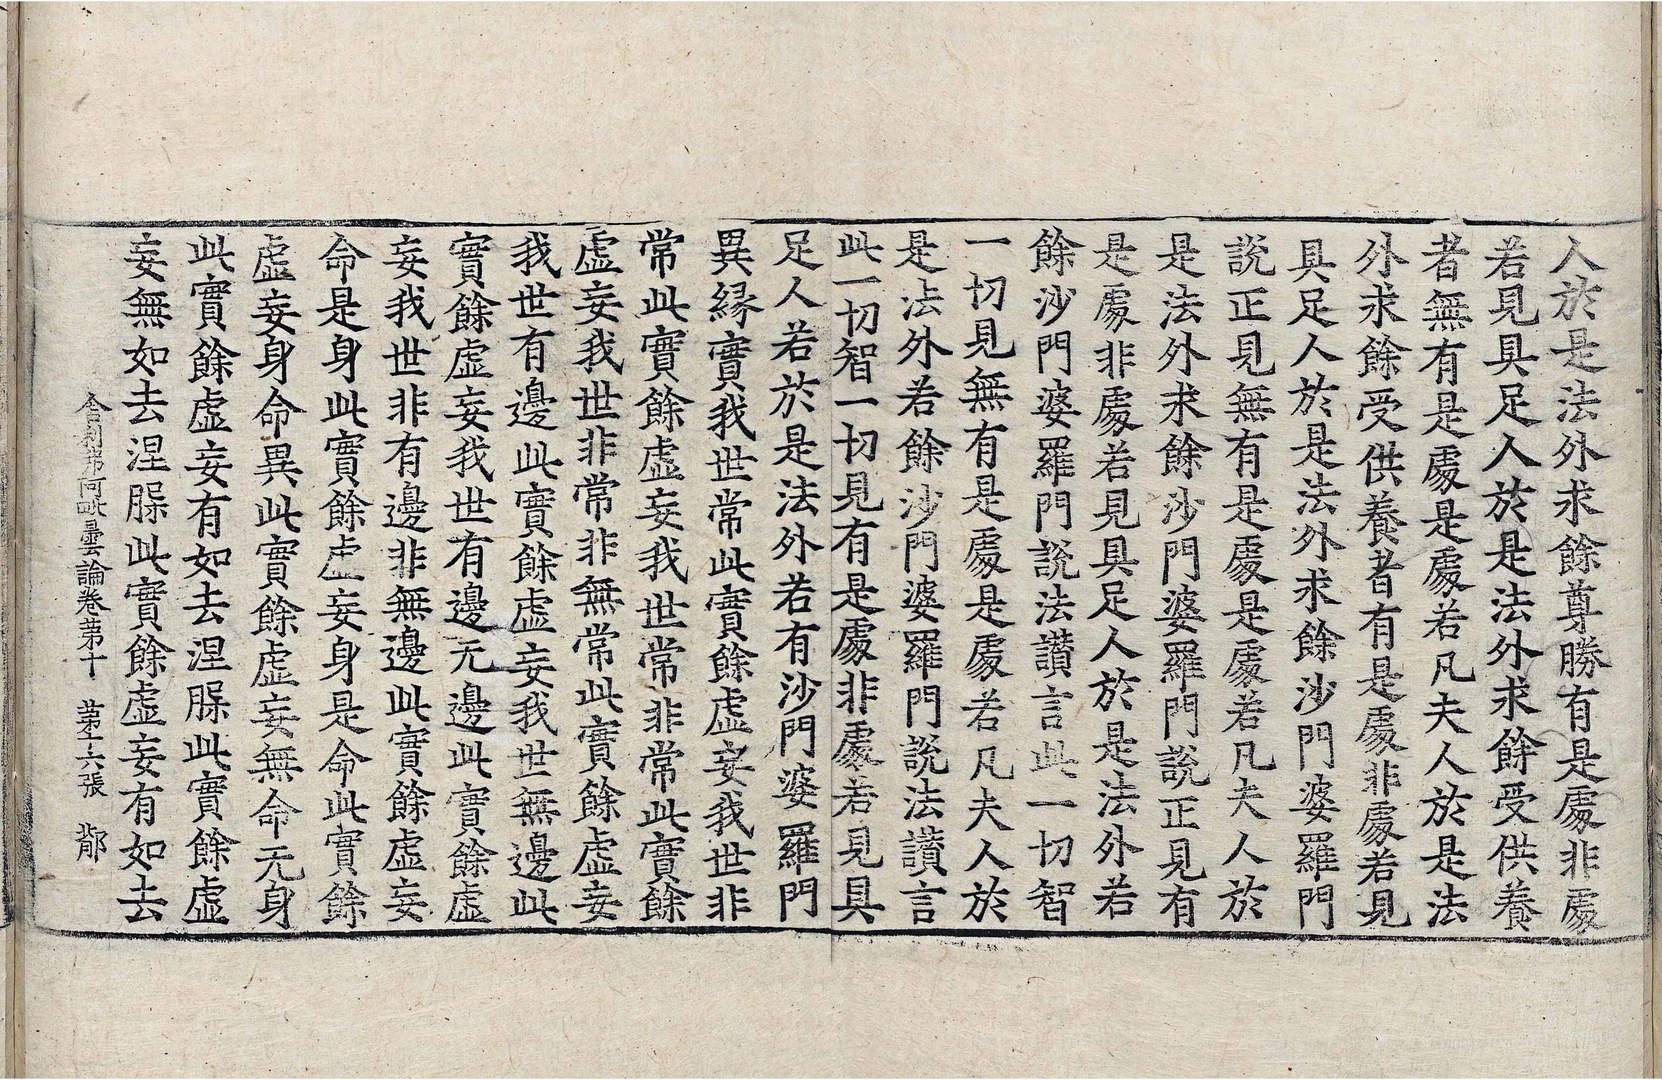 人於是法外求餘尊勝有是處非處
若見具足人於是法外求餘受供養
者無有是處是處若凡夫人於是法
外求餘受供養者有是處非處若見
具足人於是法外求餘沙門婆羅門
說正見無有是處是處若凡夫人於
是法外求餘沙門婆羅門說正見有
是處非處若見具足人於是法外若
餘沙門婆羅門說法讃言此一切智
一切見無有是處是處若凡夫人於
是法外若餘沙門婆羅門說法讃言
此一切智一切見有是處非處若見具
足人若於是法外若有沙門婆羅門
異縁實我世常此實餘虛妄我世非
常此實餘虛妄我世常非常此實餘
虛妄我世非常非無常此實餘虛妄
我世有邊此實餘虛妄我世無邊此
實餘虛妄我世有邊无邊此實餘虛
妄我世非有邊非無邊此實餘虛妄
命是身此實餘虛妄身是命此實餘
虛妄身命異此實餘虛妄無命无身
此實餘虛妄有如去涅槃此實餘虛
妄無如去涅槃此實餘虛妄有如去
舍利弗阿毗曇論卷第十 第十六張 㒸